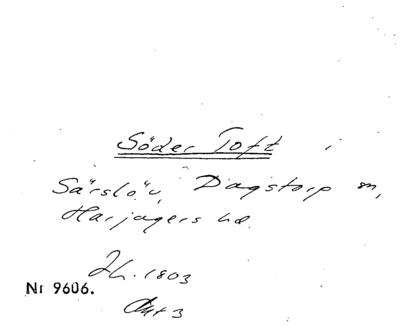 Söder Toft i
Särslöv, Dagstorp m,
Harjagers hd.
Jh. 1803
Nr 9606.
Akt 3